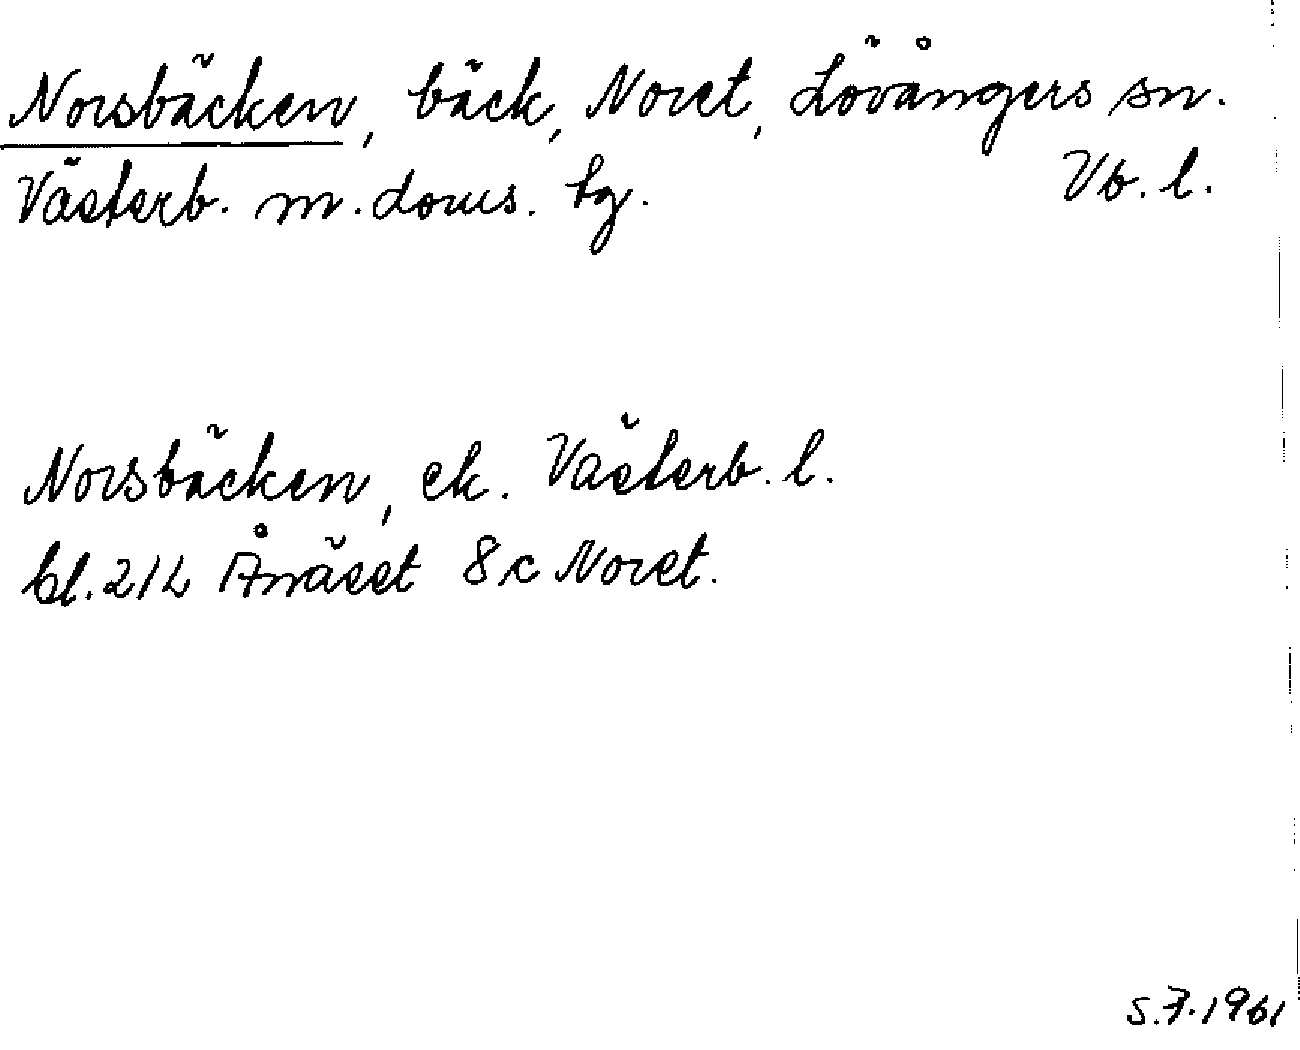 Norsbäcken, bäck, Noret, Lövångers sn.
Västerb. m. doms. tg. Vb. l.
Norsbäcken, ek. Västerb. l.
bl. 21L Ånäset 8c Noret.
S.F. 1961